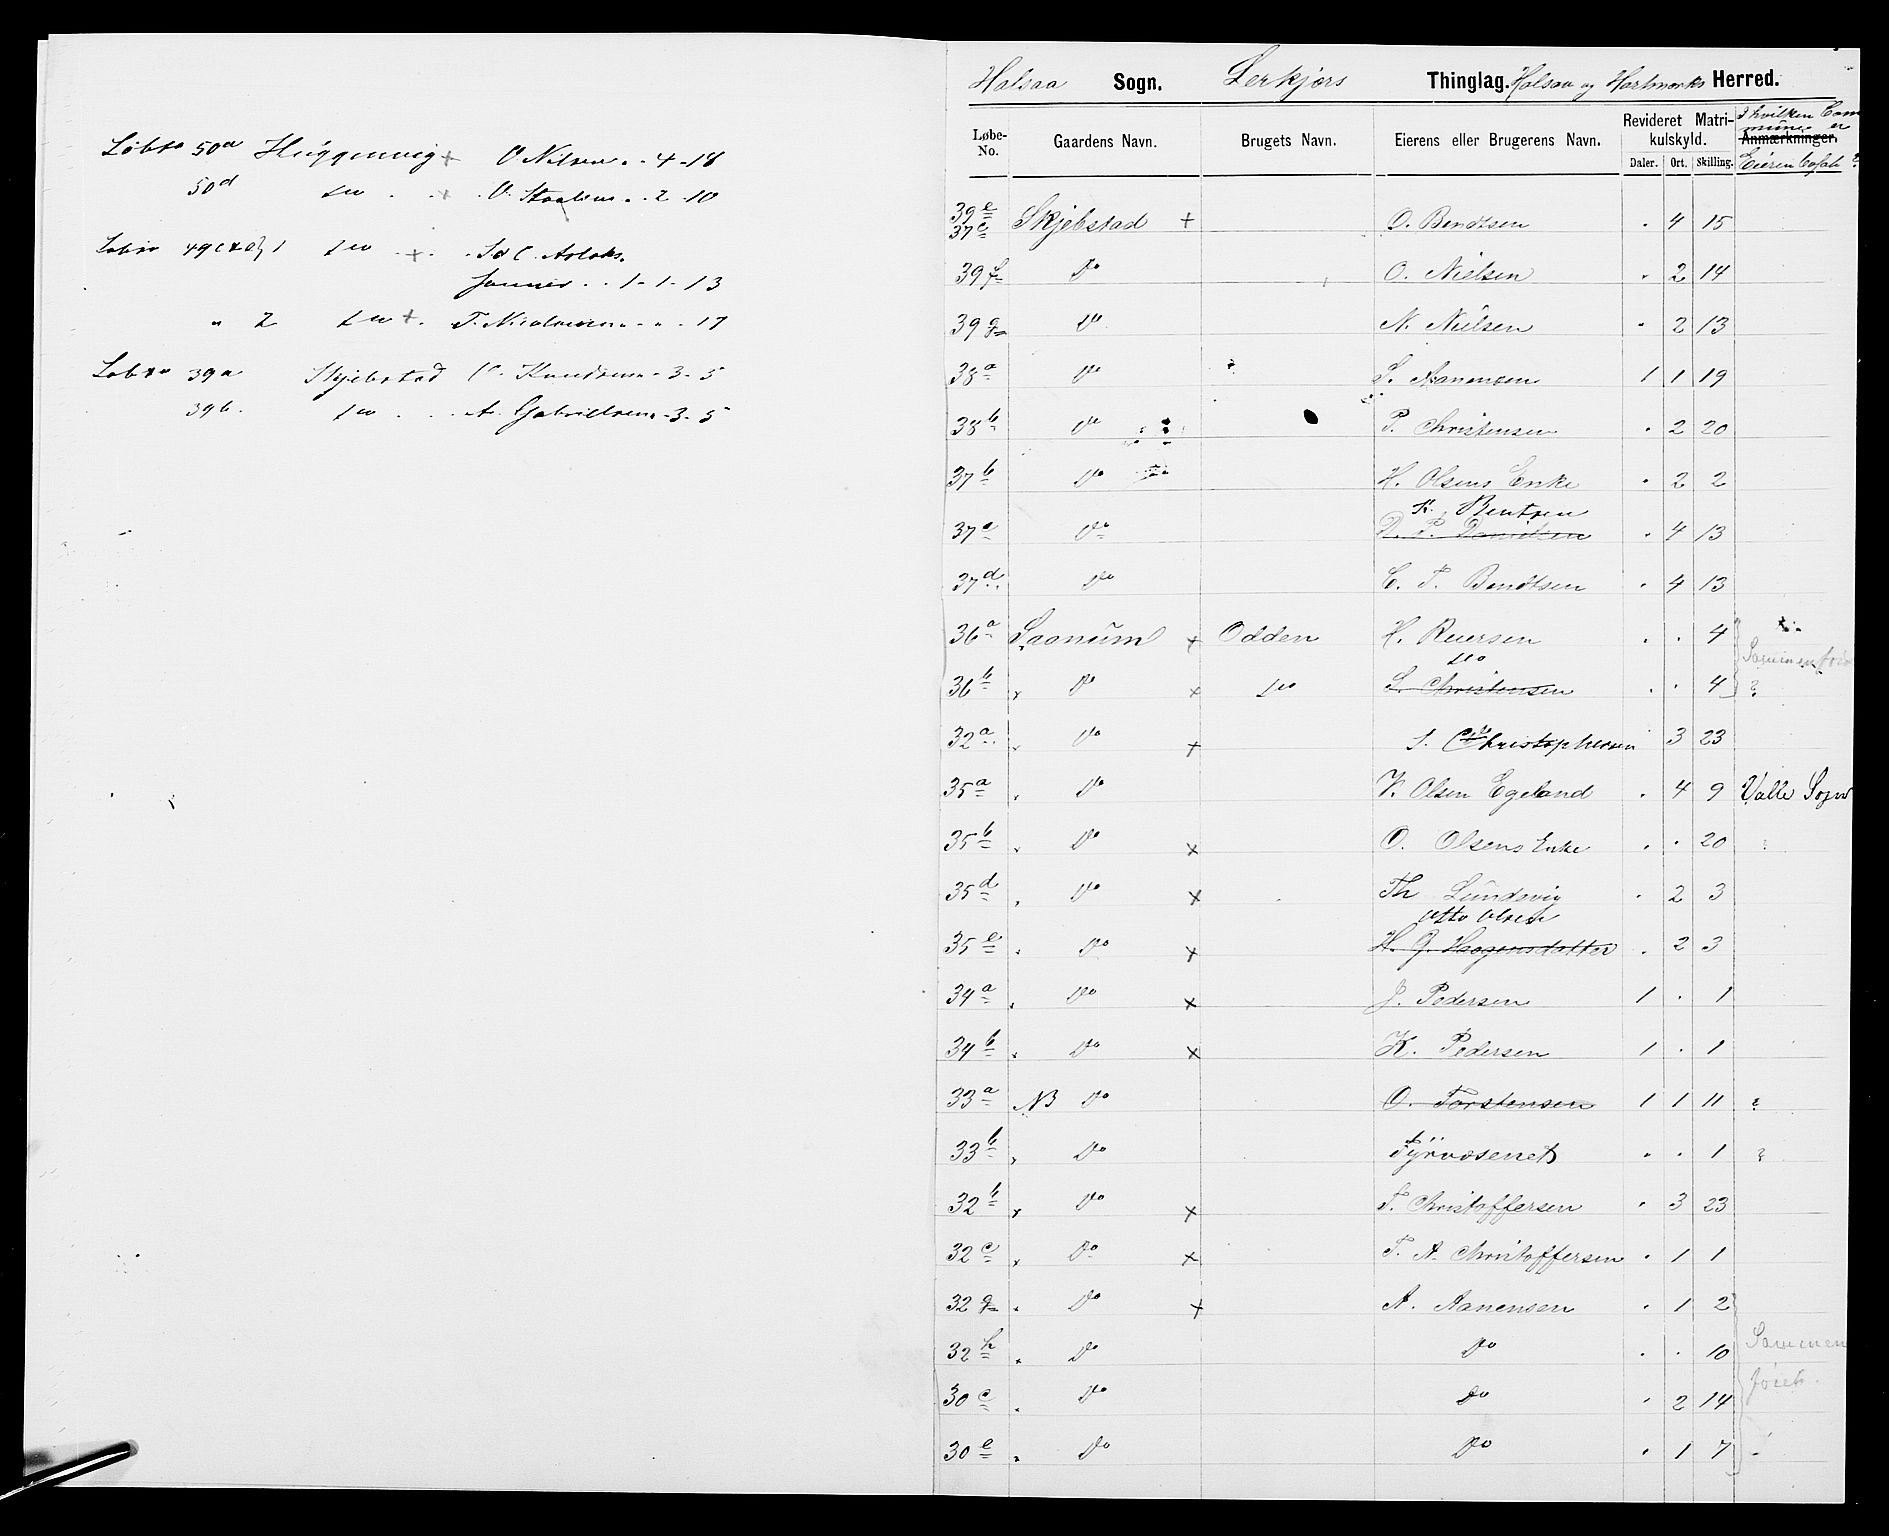 Løbno 50a Huggenvig + O Nilsen . . 4 - 18
50d do . . + O. Staalsen . . 2 - 10
Løbno 49 c & d 1 do . + . S & C. Aslaks.
Sønner . . 1 - 1 - 13
" 2 do + . T. Nicolaisen . " . 17
Løbno 39a Skjebstad C. Knudsen - 3 - 5
39b. do . . . A. Gabrielsen . - 3 - 5
Halsaa Sogn. Lerkjærs Thinglag. Halsaa og Hartmarks Herred.
Løbe-No. Gaardens Navn. Brugets Navn. Eierens eller Brugerens Navn. Revideret Matrikulskyld. Daler. Ort. Skilling. Anmærkninger. I hvilken Commune er Eieren bosat?
39e 37c Skjebstad + O. Bendtsen . 4 15
39f Do O. Nielsen . 2 14
39g Do N. Nielsen . 2 13
38a Do S. Aanensen 1 1 19
38b Do P. Christensen . 2 20
37b Do H. Olsens Enke . 2 2
K. Bentsen
37a Do D. P. Danielsen . 4 13
37d Do C. T. Bendtsen . 4 13
36a Saanum + Odden H. Reiersen . . 4
do
36b Do + do S. Christensen . . 4 ?
32a Do + S. Christophersen 3 23
35a Do K. Olsen Egeland . 4 9 Valle Sogn
35b Do + O. Olsens Enke . . 20
35d Do + Th Lundevig . 2 3
Otto Olsen
35e Do + H. G. Haagensdatter . 2 3
34a Do + J. Pedersen 1 . 1
34b Do + K. Pedersen 1 . 1
33a NB Do O. Torstensen 1 1 11 ?
33b Do Fyrvæsenet . . 1 ?
32b Do + T. Christoffersen . 3 23
32c Do + T. A. Christoffersen . 1 1
32g Do + A. Aanensen . 1 2
32h Do Do . . 10 Sammen
30c Do Do . 2 14 føiet.
30e Do Do . 1 7